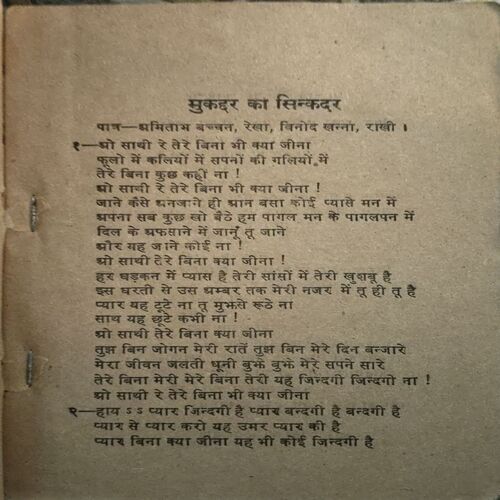 मुकद्दर का सिन्कदर
पात्र—अमिताभ बच्चन, रेखा, विनोद खन्ना, राखी ।
१—ओ साथी रे तेरे बिना भी क्या जीना
फूलों में कलियों में सपनों की गलियों में
तेरे बिना कुछ कहीं ना !
ओ साथी रे तेरे बिना भी क्या जीना !
जाने कैसे अनजाने ही आन बसा कोई प्यासे मन में
अपना सब कुछ खो बैठे हम पागल मन के पागलपन में
दिल के अफसाने में जानूँ तू जाने
और यह जाने कोई ना !
ओ साथी तेरे बिना क्या जीना !
हर धड़कन में प्यास है तेरी सांसों में तेरी खुशबू है
इस धरती से उस अम्बर तक मेरी नजर में तू ही तू है
प्यार यह टूटे ना तू मुझसे रूठे ना
साथ यह छूटे कभी ना !
ओ साथी तेरे बिना क्या जीना
तुझ बिन जोगन मेरी रातें तुझ बिन मेरे दिन बन्जारे
मेरा जीवन जलती धूनी बुझे बुझे मेरे सपने सारे
तेरे बिना मेरी मेरे बिना तेरी यह जिन्दगी जिन्दगी ना !
ओ साथी रे तेरे बिना भी क्या जीना
२—हाय ऽ ऽ प्यार जिन्दगी है प्यार बन्दगी है बन्दगी है
प्यार से प्यार करो यह उमर प्यार की है
प्यार बिना क्या जीना यह भी कोई जिन्दगी है